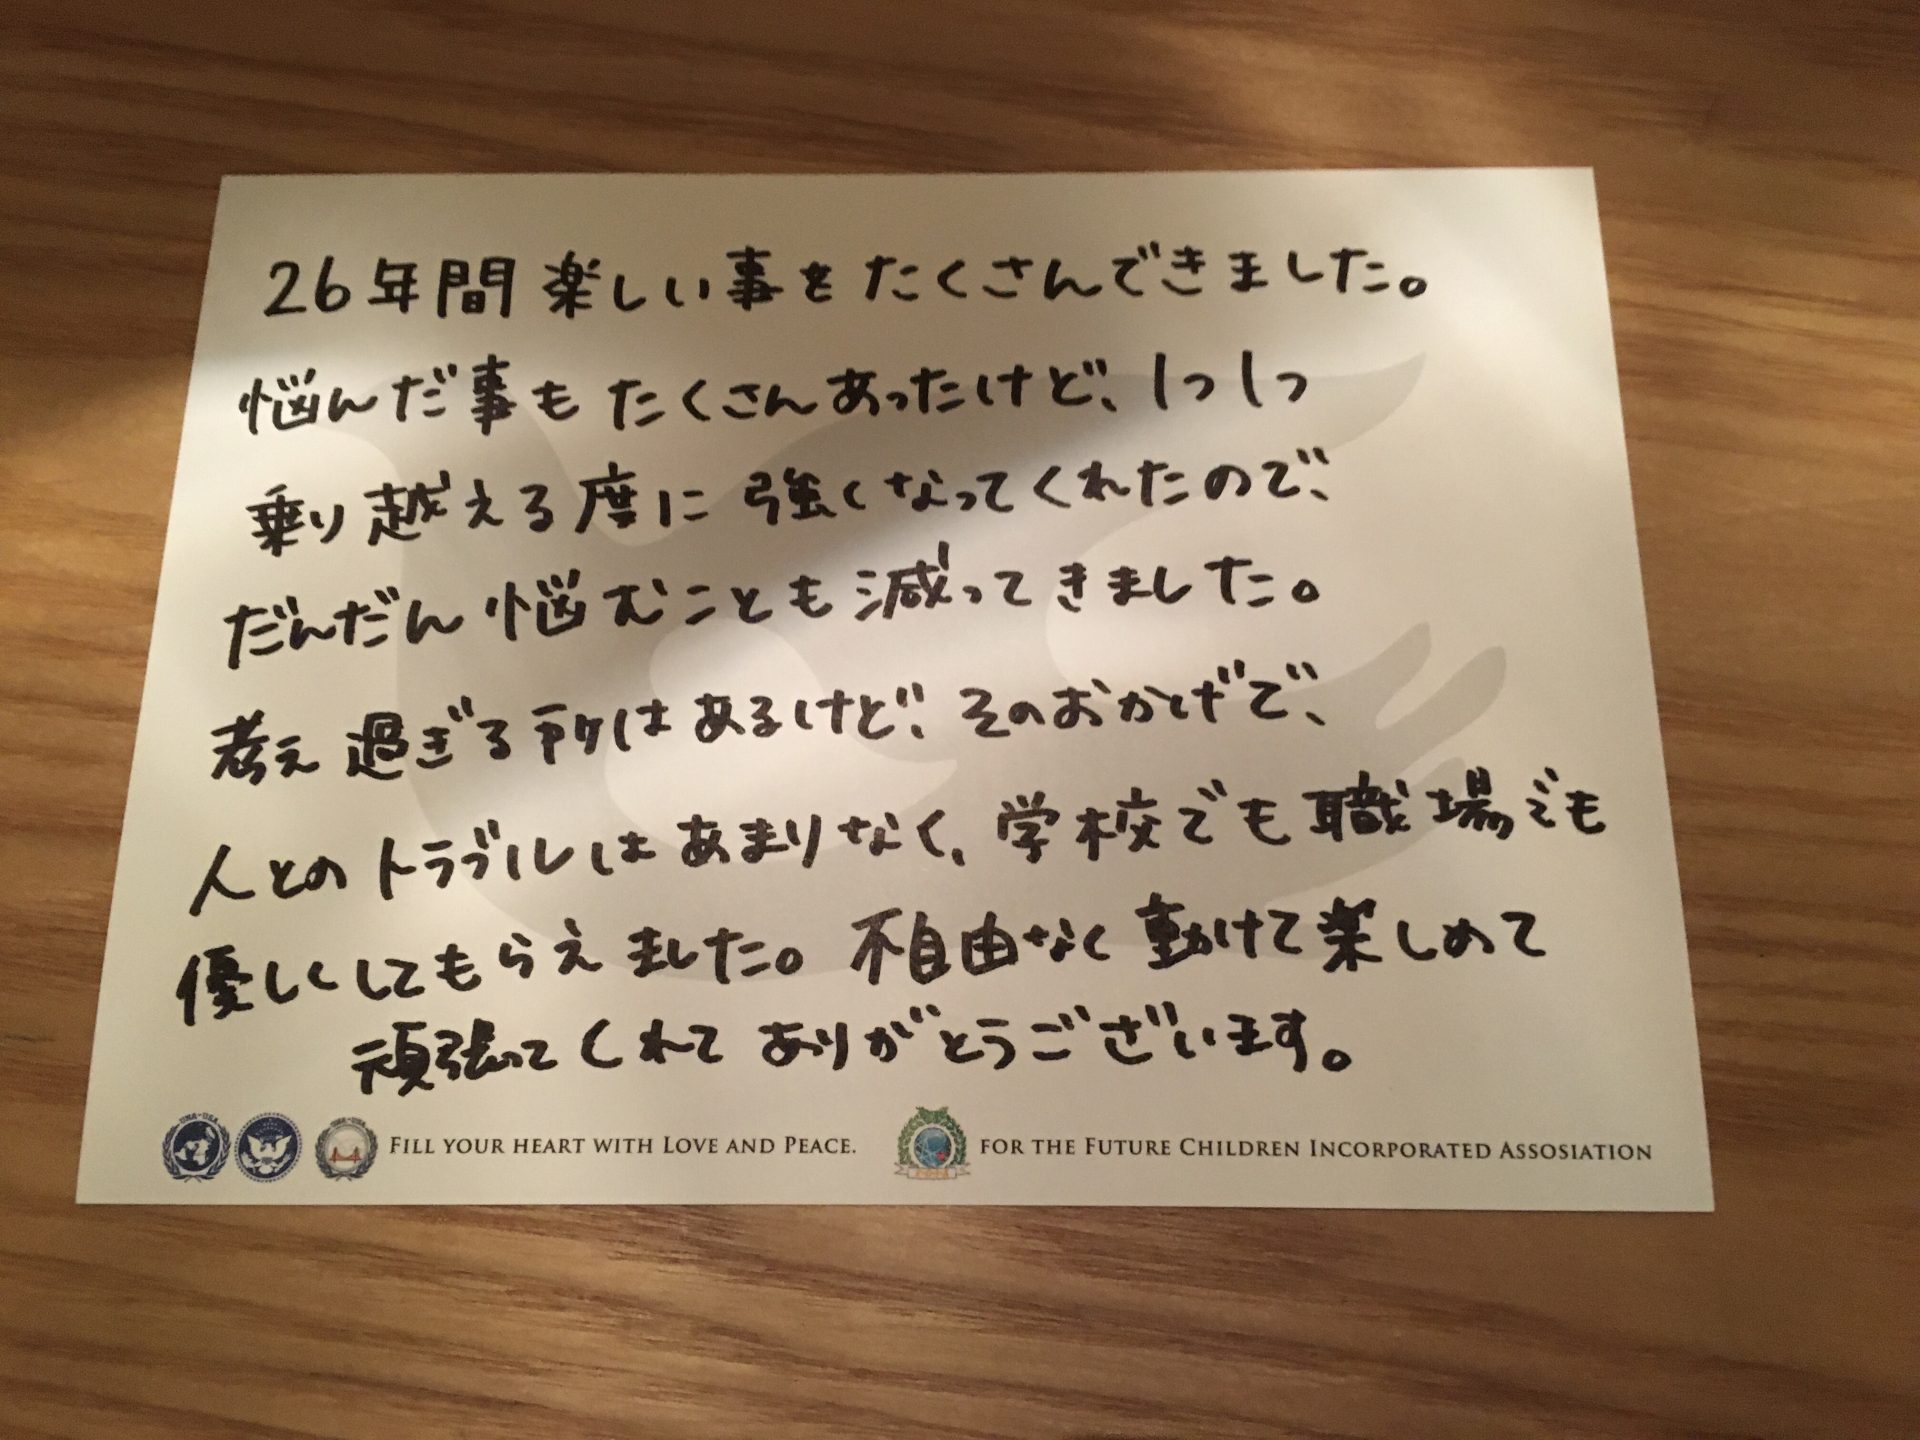 26年間 楽しい事をたくさんできました。
悩んだ事もたくさんあったけど、1つ1つ
乗り越える度に強くなってくれたので、
だんだん悩むことも減ってきました。
考え過ぎる所はあるけど、そのおかげで、
人とのトラブルはあまりなく、学校でも職場でも
優しくしてもらえました。不自由なく動けて楽しめて
頑張ってくれてありがとうございます。
FILL YOUR HEART WITH LOVE AND PEACE. FOR THE FUTURE CHILDREN INCORPORATED ASSOSIATION